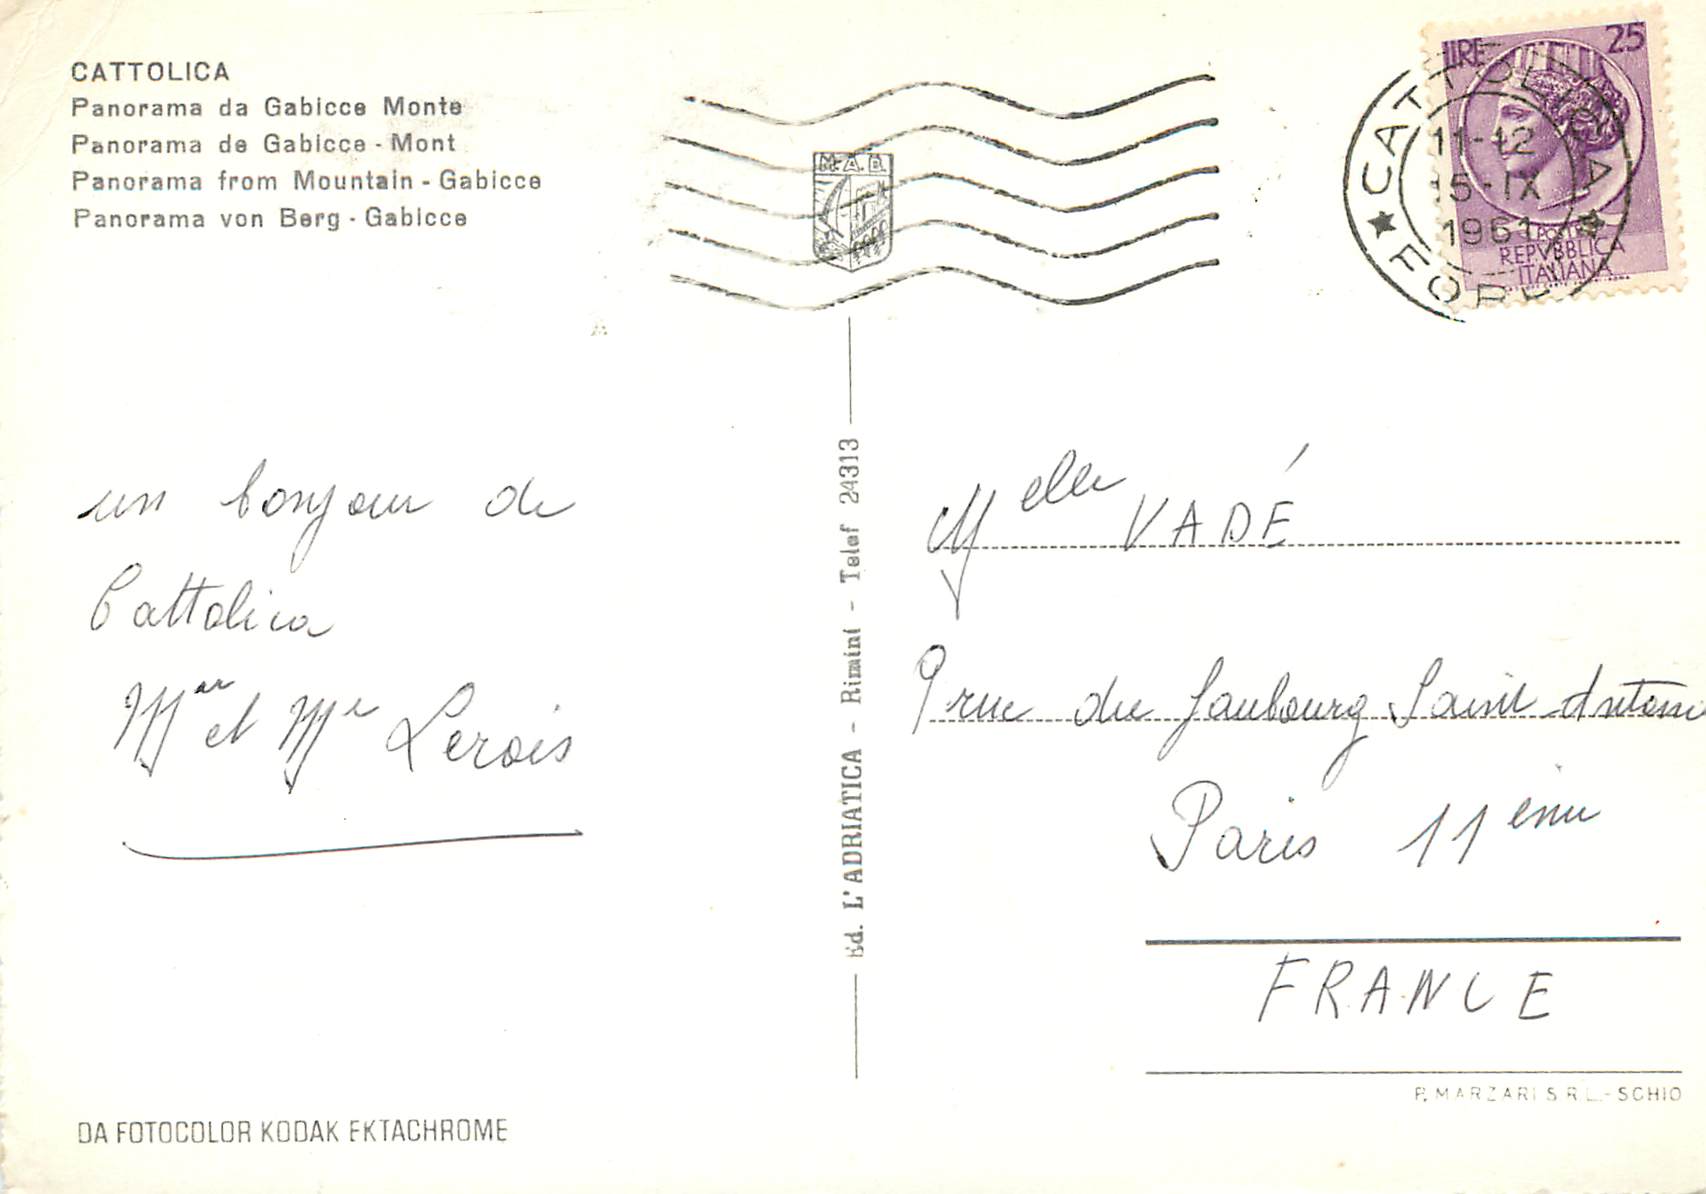 CATTOLICA
Panorama da Gabicce Monte
Panorama de Gabicce - Mont
Panorama from Mountain - Gabicce
Panorama von Berg - Gabicce
M.A.B.
LIRE 25
POSTE
REPVBBLICA
ITALIANA
CATTOLICA
11-12
15-IX
1961
un bonjour de
Cattolica
Mr et Me Lerois
Ed. L'ADRIATICA - Rimini - Telef 24313
Melle VADÉ
9 rue du faubourg Saint Antoine
Paris 11ème
FRANCE
P. MARZARI S R L. - SCHIO
DA FOTOCOLOR KODAK EKTACHROME